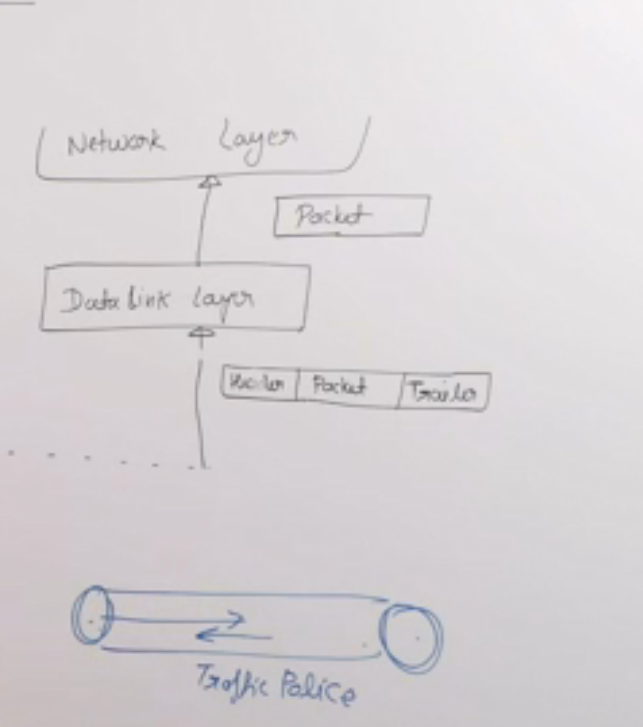 Network Layer
Packet
Data Link Layer
Header Packet Trailer
Traffic Police